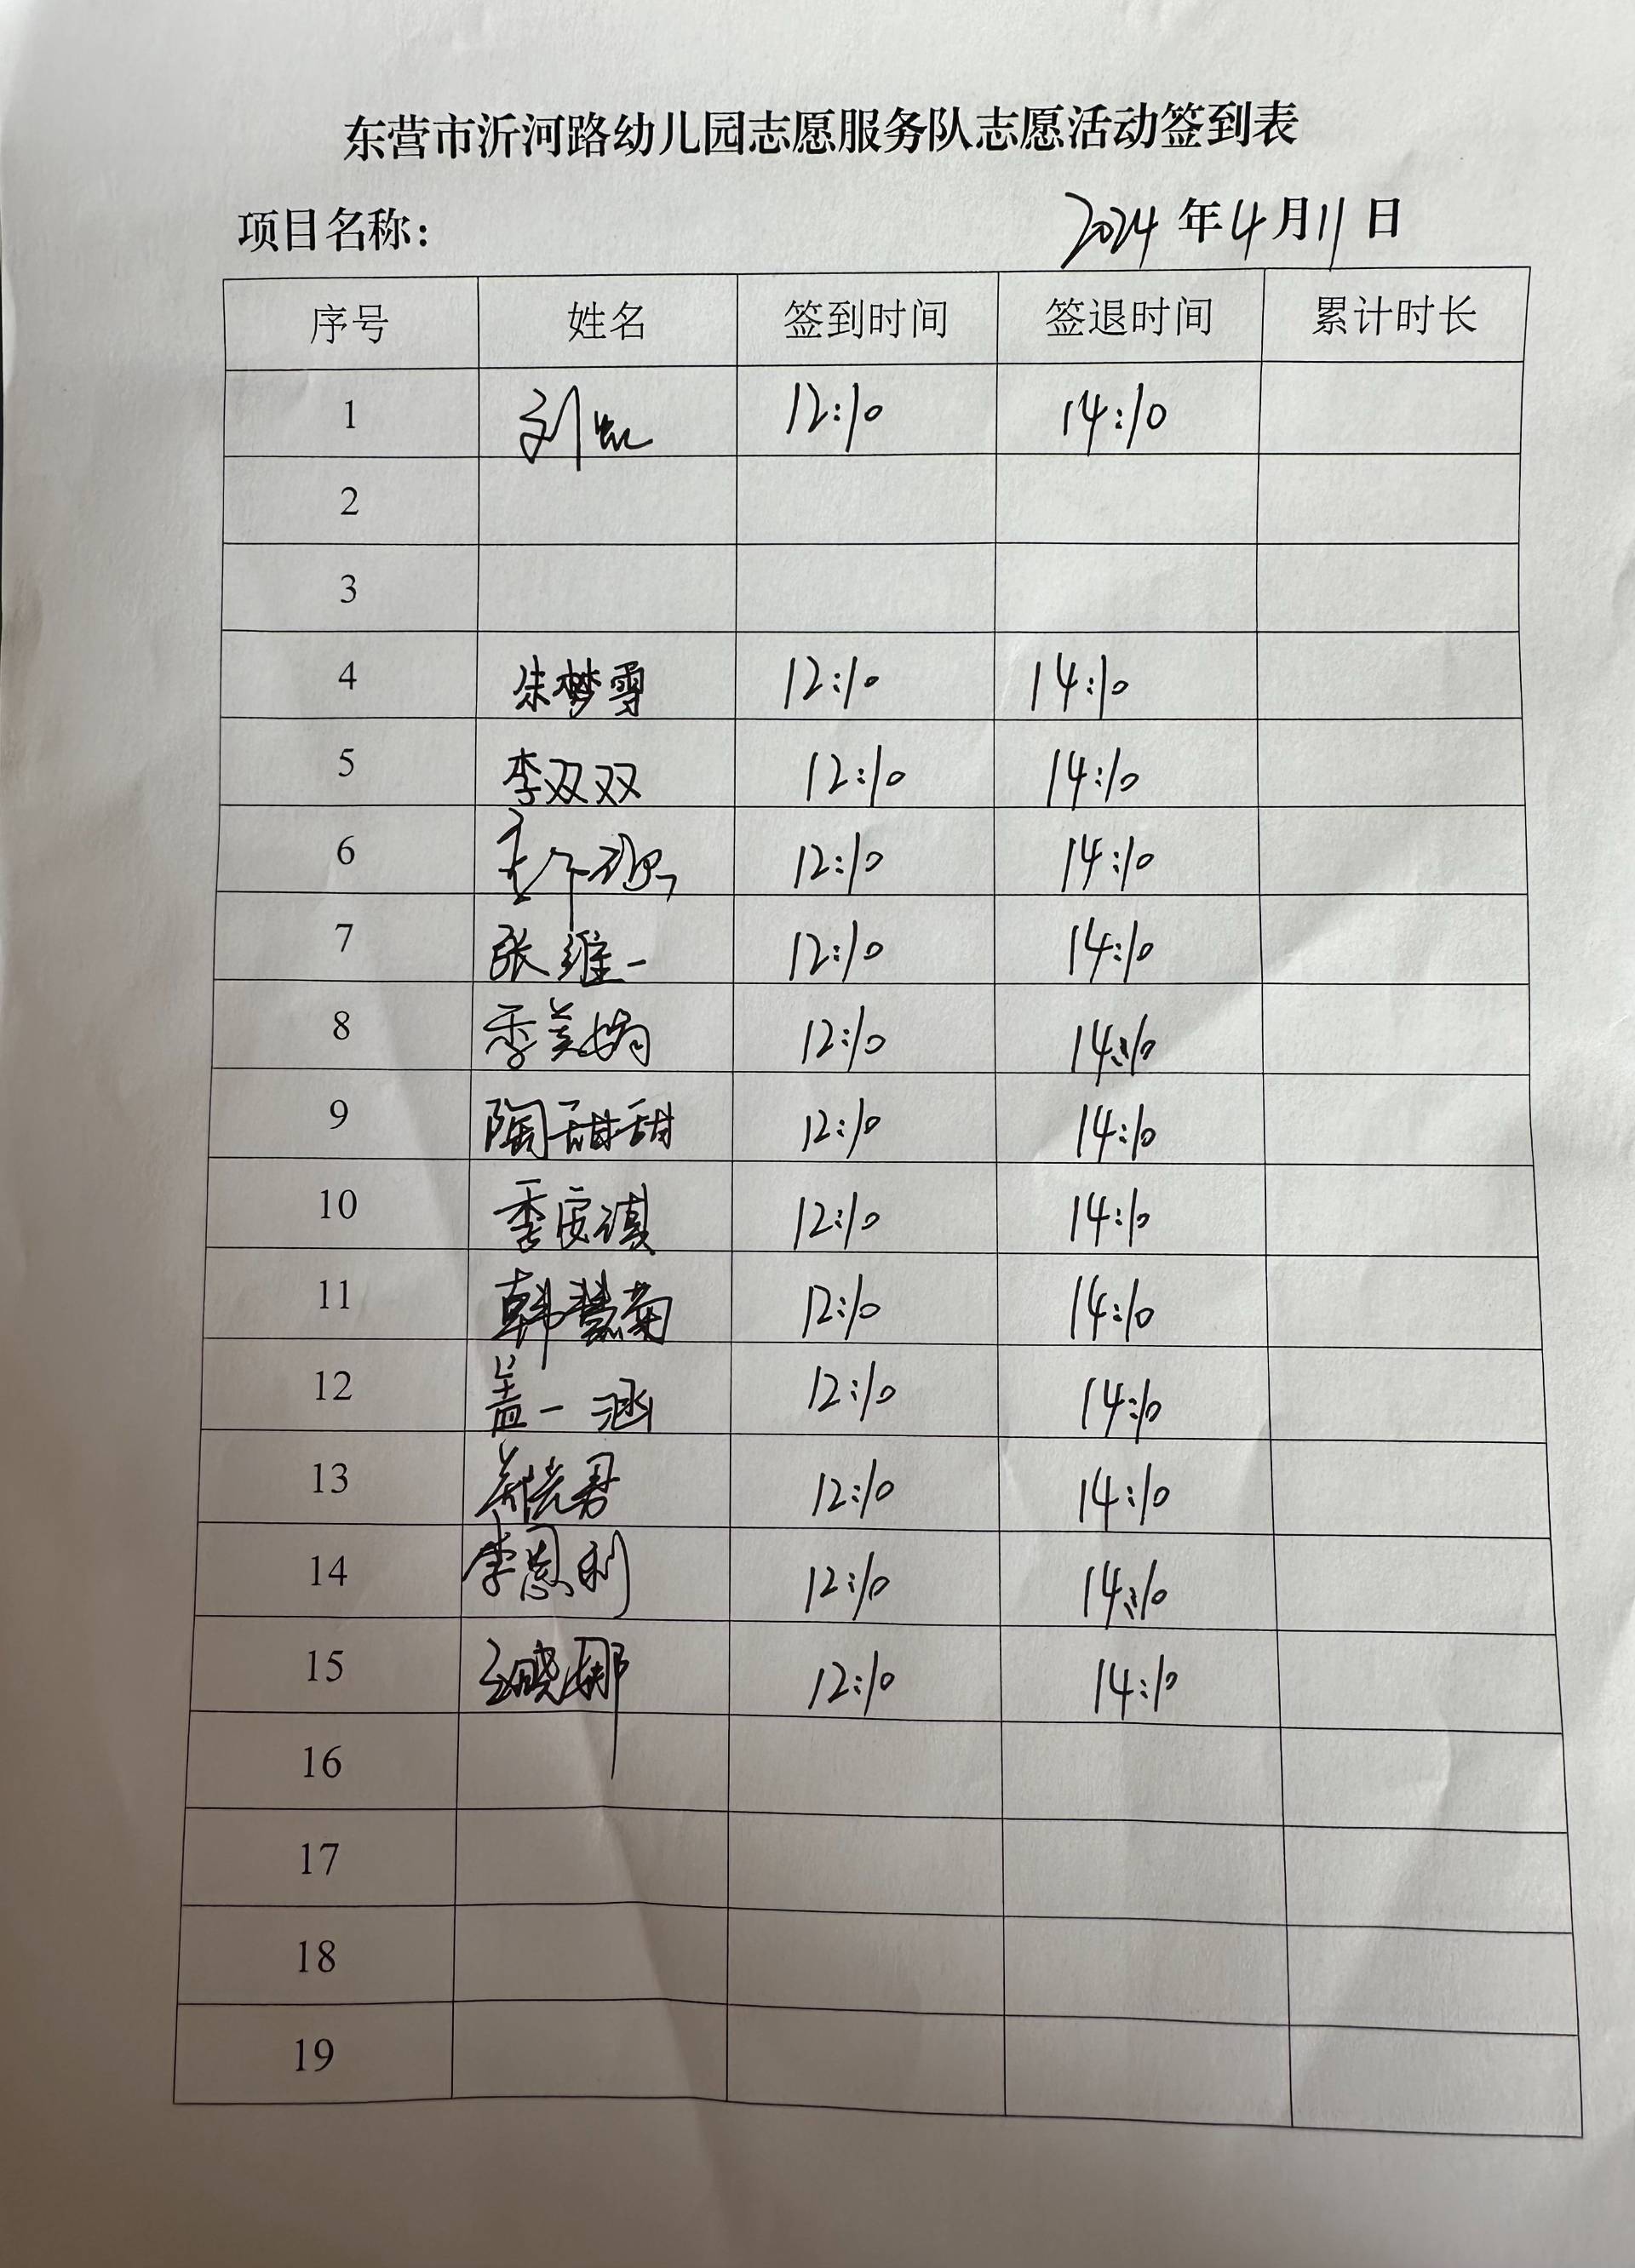 东营市沂河路幼儿园志愿服务队志愿活动签到表
项目名称： 2024年4月11日
序号 姓名 签到时间 签退时间 累计时长
1 刘凯 12:10 14:10
2
3
4 朱梦雪 12:10 14:10
5 李双双 12:10 14:10
6 12:10 14:10
7 张维一 12:10 14:10
8 季美娟 12:10 14:10
9 陶甜甜 12:10 14:10
10 季安琪 12:10 14:10
11 韩慧菊 12:10 14:10
12 盖一涵 12:10 14:10
13 12:10 14:10
14 李恩利 12:10 14:10
15 王晓娜 12:10 14:10
16
17
18
19